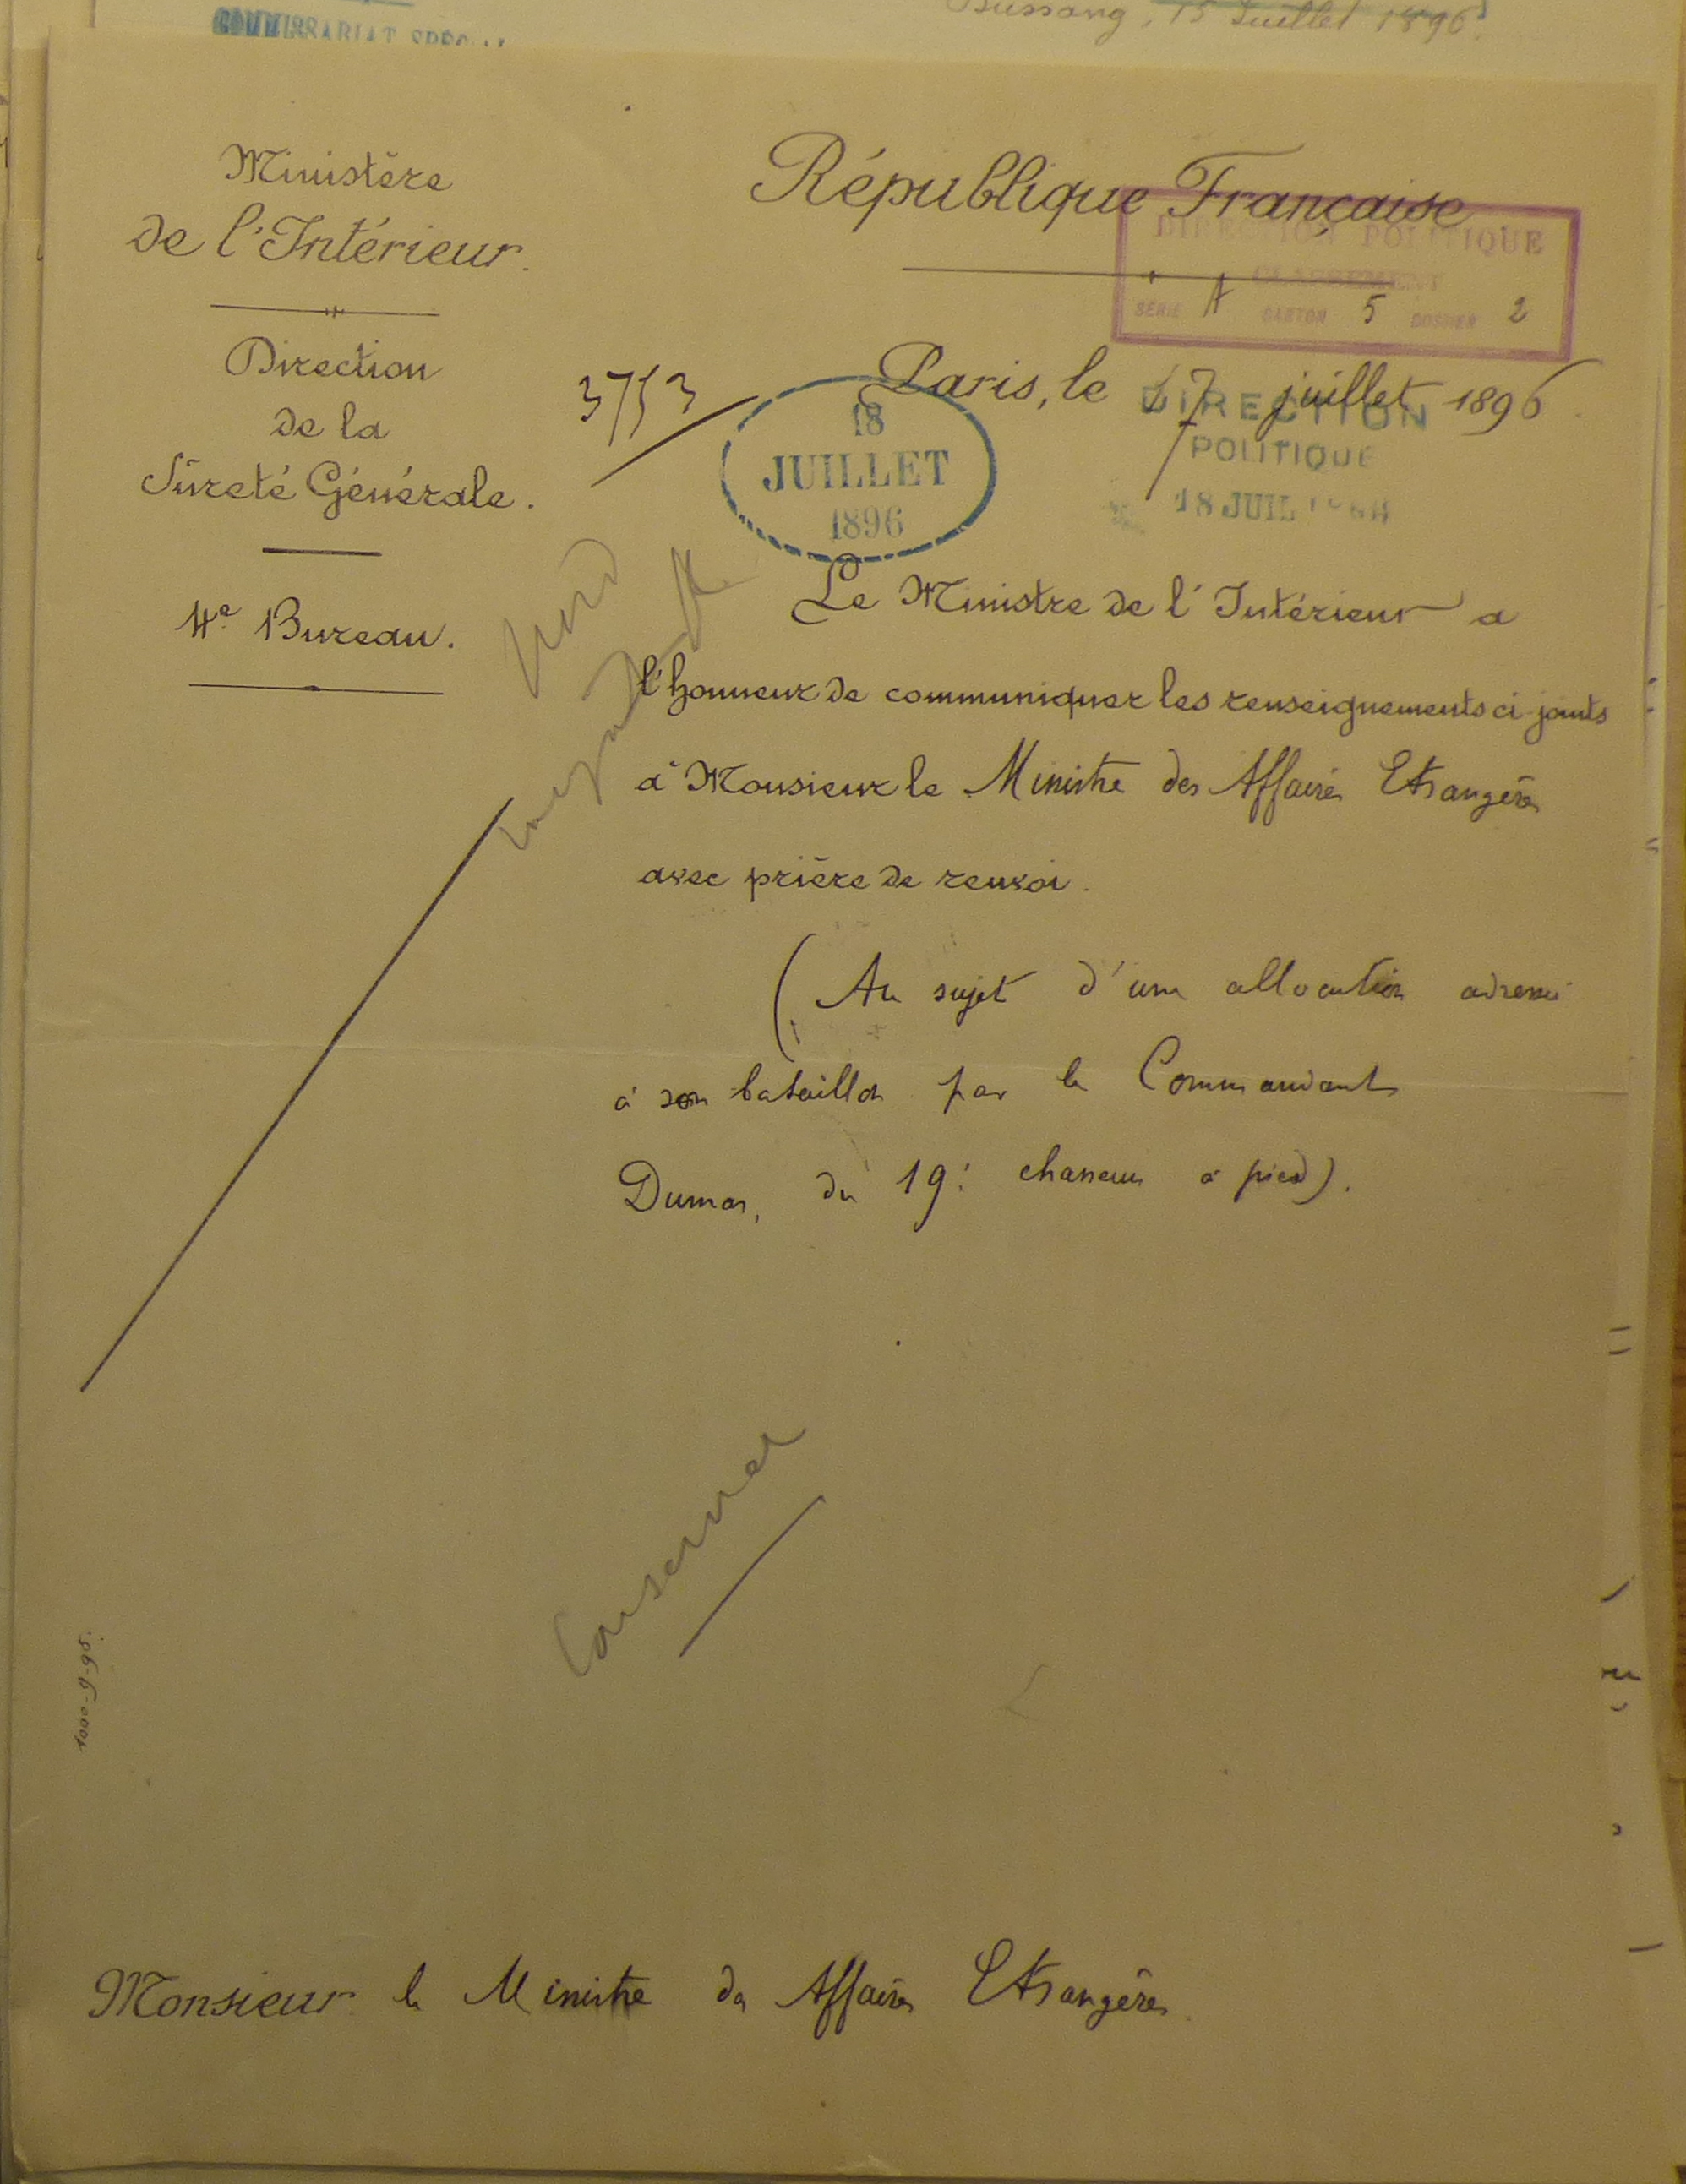 COMMISSARIAT SPÉCIAL
Bussang, 15 Juillet 1896
Ministère
de l'Intérieur.
Direction
de la
Sûreté Générale.
4e Bureau.
République Française
DIRECTION POLITIQUE
CLASSEMENT
SÉRIE A CARTON 5 DOSSIER 2
3753
Paris, le 17 juillet 1896
18
JUILLET
1896
DIRECTION
POLITIQUE
18 JUIL
Le Ministre de l'Intérieur a
l'honneur de communiquer les renseignements ci-joints
à Monsieur le Ministre des Affaires Etrangères
avec prière de renvoi.
(Au sujet d'une allocution adressée
à son bataillon par le Commandant
Dumas, du 19e chasseurs à pied).
Conserver
Monsieur le Ministre des Affaires Etrangères.